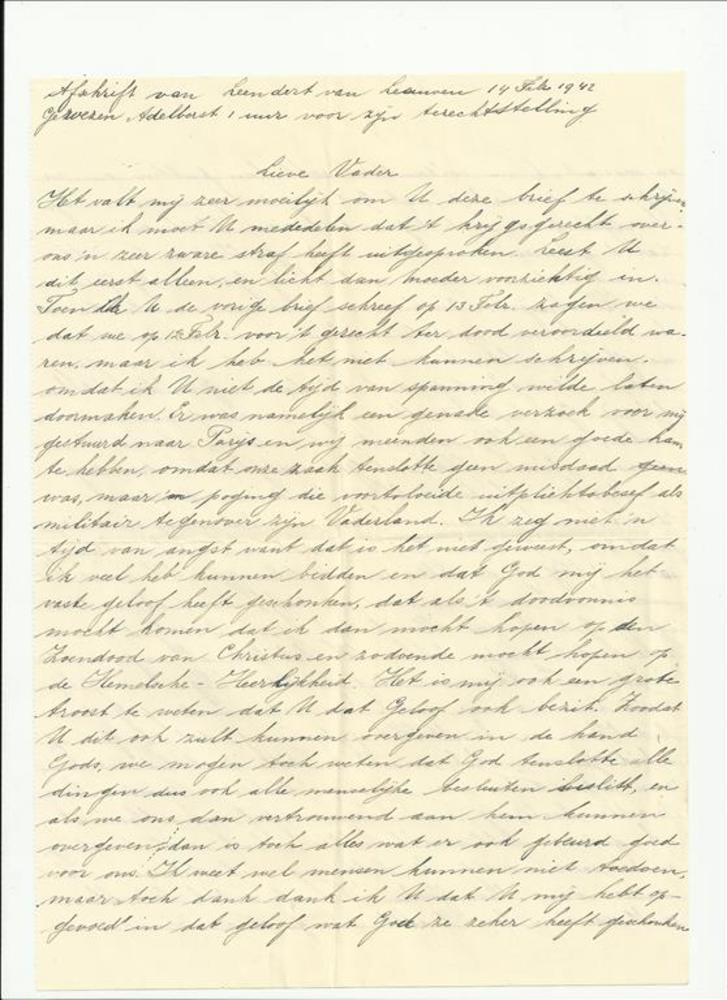 Afschrift van Leendert van Leeuwen 14 Feb 1942
Gewezen Adelborst 1 uur voor zijn terechtstelling
Lieve Vader
Het valt mij zeer moeilijk om U deze brief te schrijven
maar ik moet U mededelen dat 't krijgsgerecht over-
ons 'n zeer zware straf heeft uitgesproken. Leest U
dit eerst alleen, en licht dan moeder voorzichtig in.
Toen ik U de vorige brief schreef op 13 Febr. zagen we
dat we op 12 Febr. voor 't gerecht ter dood veroordeeld wa-
ren, maar ik heb het niet kunnen schrijven.
omdat ik U niet de tijd van spanning wilde laten
doormaken. Er was namelijk een genade verzoek voor mij
gestuurd naar Parijs en wij meenden ook een goede kans
te hebben, omdat onze zaak tenslotte geen misdaad geen
was, maar 'n poging die voortvloeide uit plichtsbesef als
militair tegenover zijn Vaderland. Ik zeg niet 'n
tijd van angst want dat is het niet geweest, omdat
ik veel heb kunnen bidden en dat God mij het
vaste geloof heeft geschonken, dat als 't doodvonnis
mocht komen dat ik dan mocht hopen op den
Zoendood van Christus en zodoende mocht hopen op
de Hemelsche-Heerlijkheid. Het is mij ook een grote
troost te weten dat U dat Geloof ook bezit. Zoodat
U dit ook zult kunnen overgeven in de hand
Gods, we mogen toch weten dat God tenslotte alle
dingen dus ook alle menselijke besluiten beslist, en
als we ons dan vertrouwend aan hem kunnen
overgeven, dan is toch alles wat er ook gebeurd goed
voor ons. Ik weet wel mensen kunnen niet toedoen,
maar toch dank dank ik U dat U mij hebt op-
gevoed in dat geloof wat God ze zeker heeft geschonken